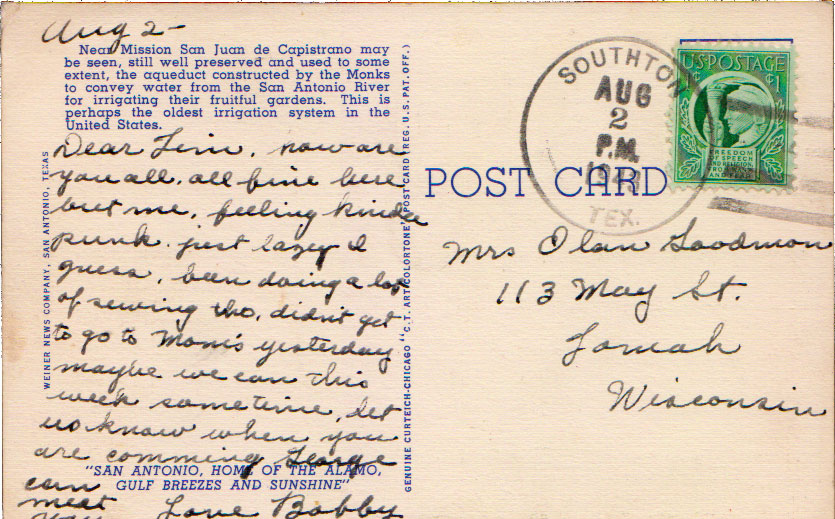 Aug 2-
Near Mission San Juan de Capistrano may
be seen, still well preserved and used to some
extent, the aqueduct constructed by the Monks
to convey water from the San Antonio River
for irrigating their fruitful gardens. This is
perhaps the oldest irrigation system in the
United States.
Dear , how are
you all. all fine here
but me, feeling kinda
punk. just lazey I
guess, been doing a lot
of sewing tho. didn't get
to go to Mom's yesterday
maybe we can this
week sometime, let
us know when you
are comming George
can
meet
you
Love Bobby
"SAN ANTONIO, HOME OF THE ALAMO,
GULF BREEZES AND SUNSHINE"
WEINER NEWS COMPANY, SAN ANTONIO, TEXAS
GENUINE CURTEICH-CHICAGO "C.T. ART-COLORTONE" POST CARD (REG. U.S. PAT. OFF.)
POST CARD
SOUTHTON
AUG
2
P.M.
TEX.
U.S. POSTAGE
1¢ ¢1
FREEDOM
OF SPEECH
AND RELIGION
FROM WANT
AND FEAR
Mrs Olan Goodman
113 May St.
Tomah
Wisconsin